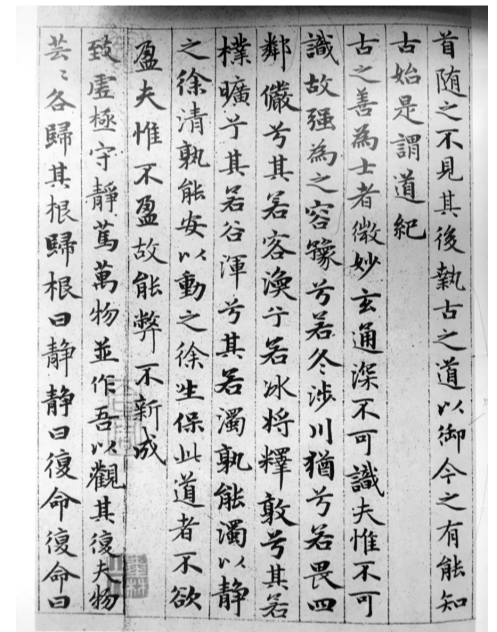 首随之不見其後執古之道以御今之有能知
古始是謂道紀
古之善為士者微妙玄通深不可識夫惟不可
識故强為之容豫兮若冬涉川猶兮若畏四
鄰儼兮其若容渙兮若冰将釋敦兮其若
樸曠兮其若谷渾兮其若濁孰能濁以静
之徐清孰能安以動之徐生保此道者不欲
盈夫惟不盈故能弊不新成
致虛極守靜篤萬物並作吾以觀其復夫物
芸〻各歸其根歸根曰静静曰復命復命曰